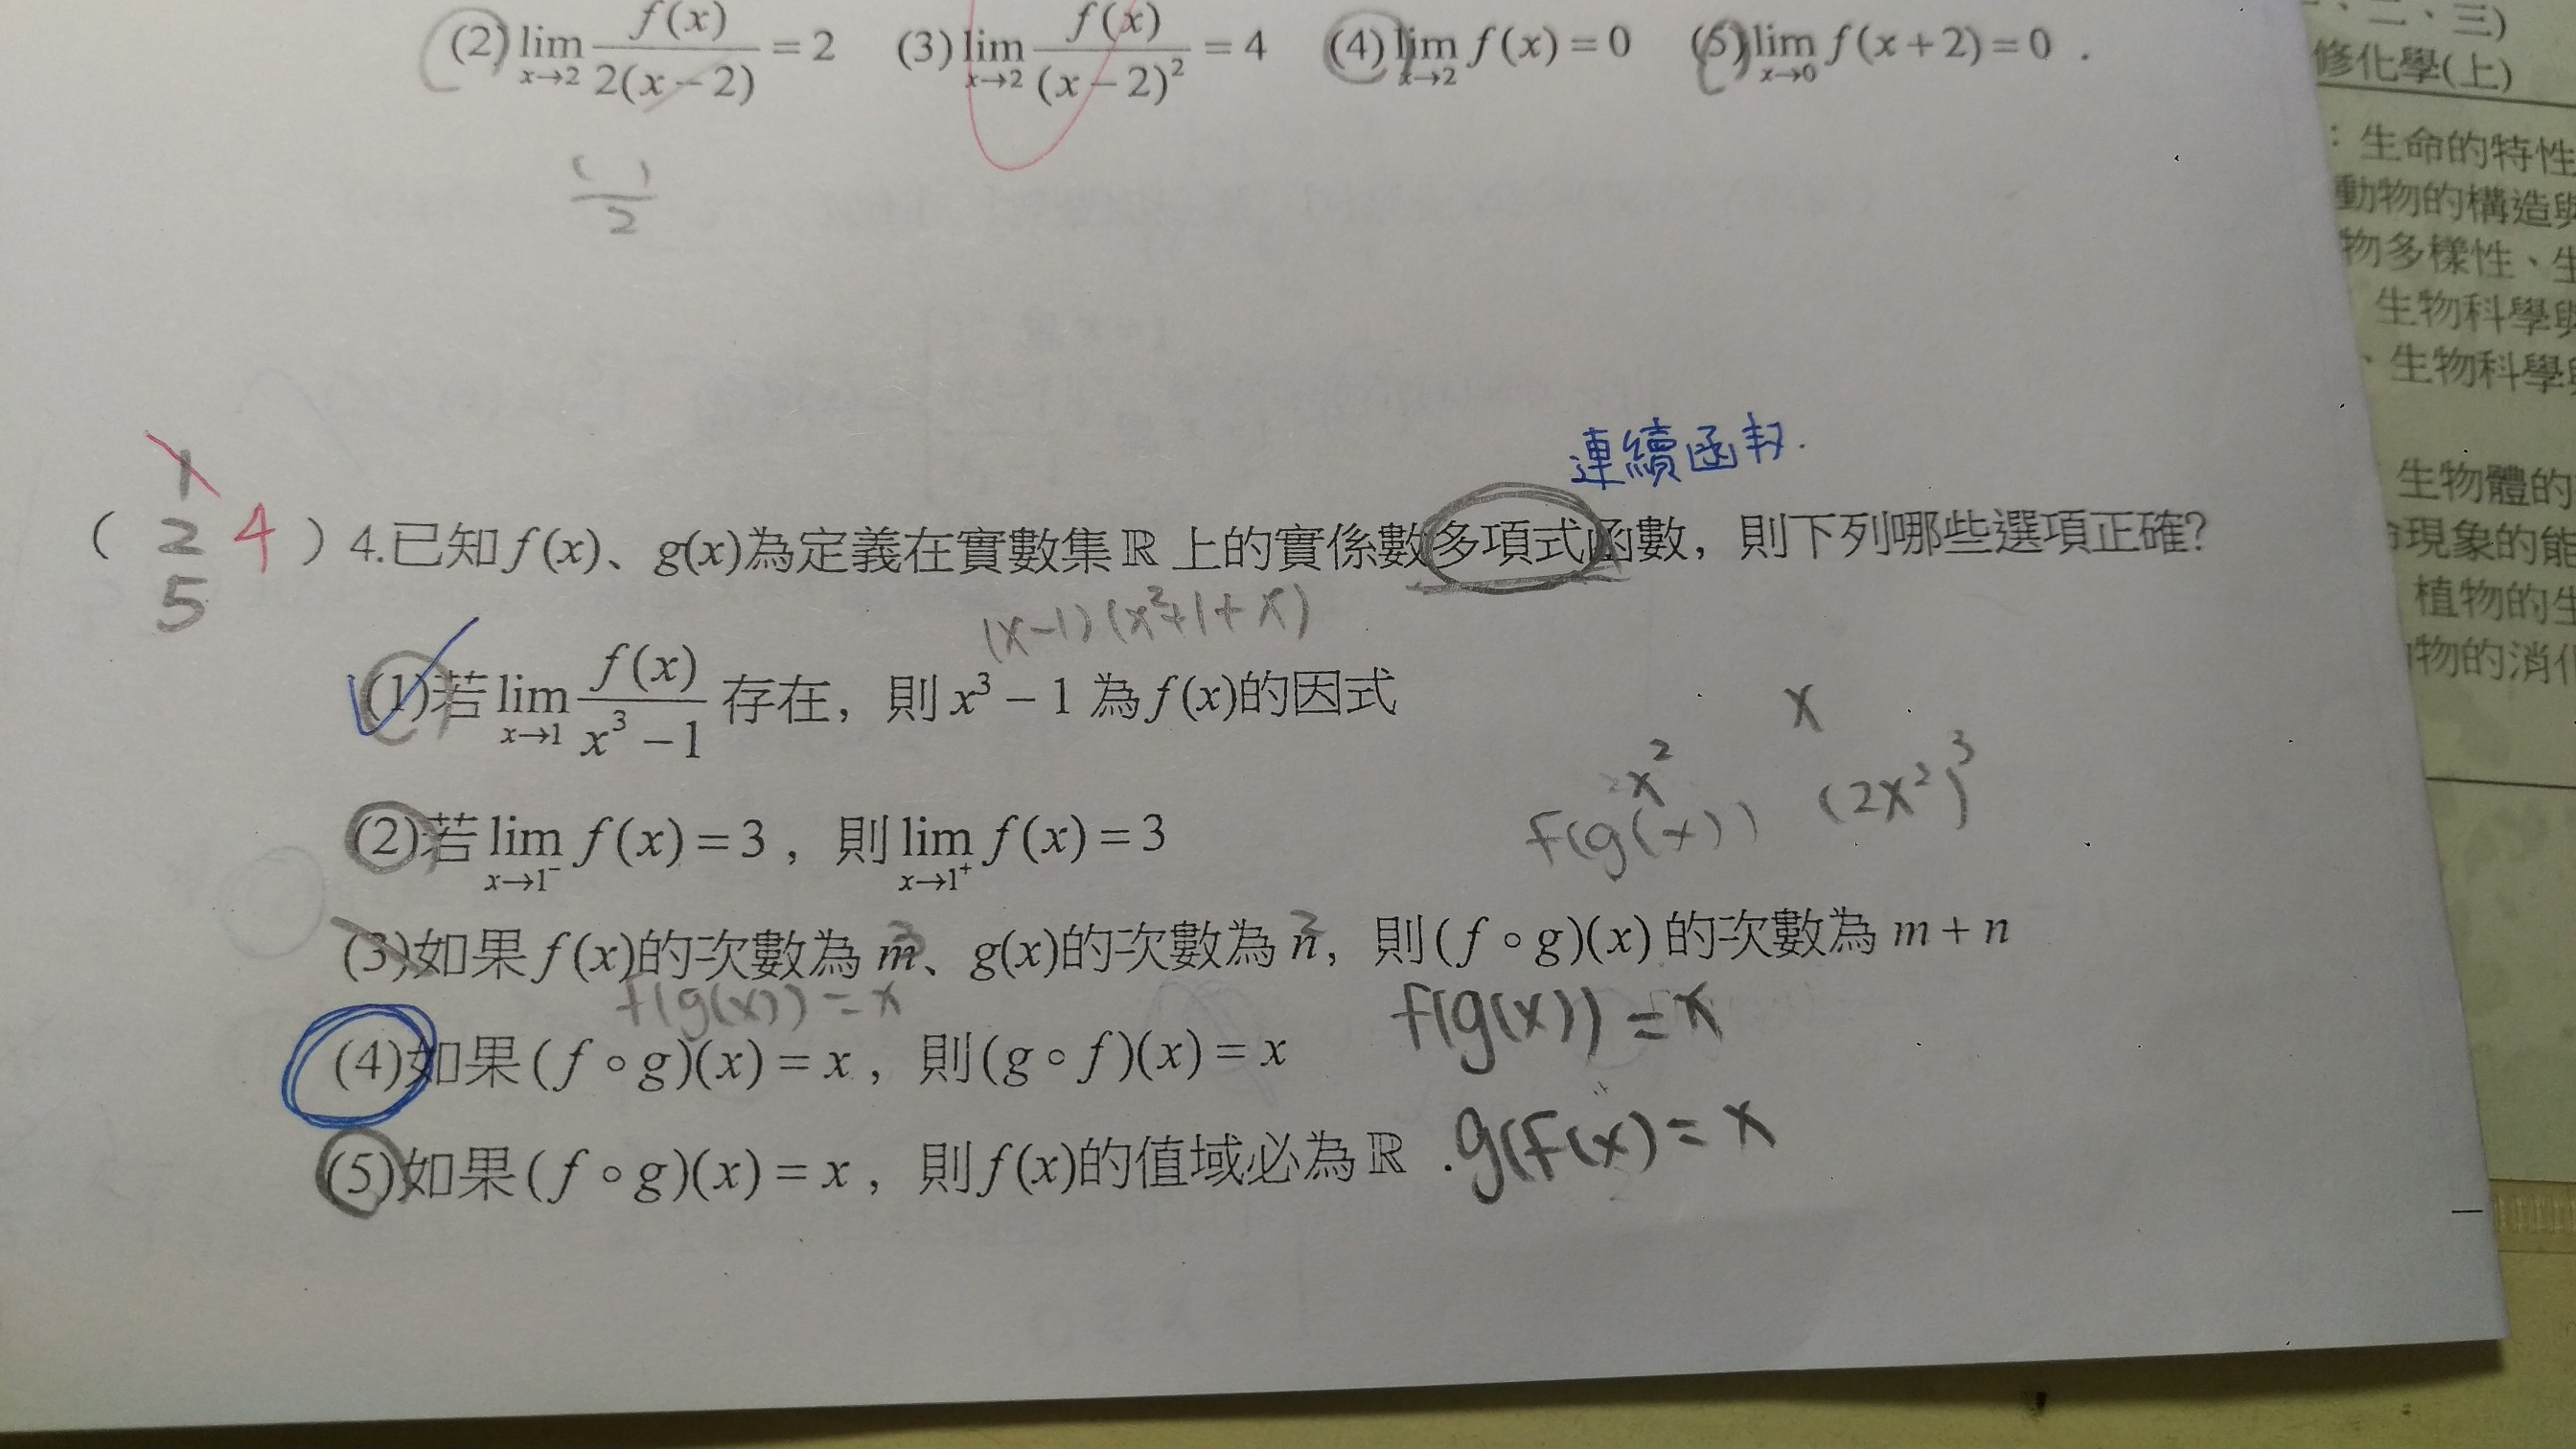 (2) lim x→2 f(x)/2(x−2) = 2 (3) lim x→2 f(x)/(x−2)² = 4 (4) lim x→2 f(x) = 0 (5) lim x→0 f(x+2) = 0 .
( )/2
連續函
( 1 2 5 4 ) 4.已知 f(x)、g(x)為定義在實數集 ℝ 上的實係數多項式函數，則下列哪些選項正確?
(x−1)(x²+1+x)
(1)若 lim x→1 f(x)/x³−1 存在，則 x³−1 為 f(x)的因式
x
x²
f(g(x)) (2x²)³
(2)若 lim x→1⁻ f(x) = 3，則 lim x→1⁺ f(x) = 3
3 2
(3)如果 f(x)的次數為 m、g(x)的次數為 n，則 (f∘g)(x) 的次數為 m+n
f(g(x)) = x f(g(x)) = x
(4)如果 (f∘g)(x) = x，則 (g∘f)(x) = x
(5)如果 (f∘g)(x) = x，則 f(x)的值域必為 ℝ . g(f(x) = x
、二、三)
修化學(上)
：生命的特性
動物的構造與
物多樣性、生
生物科學與
、生物科學與
生物體的
命現象的能
植物的生
物的消化